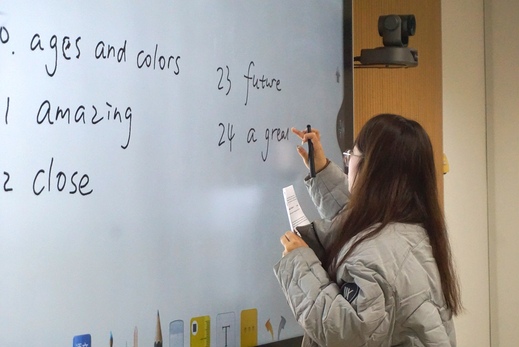 0. ages and colors
1 amazing
2 close
23 future
24 a grea